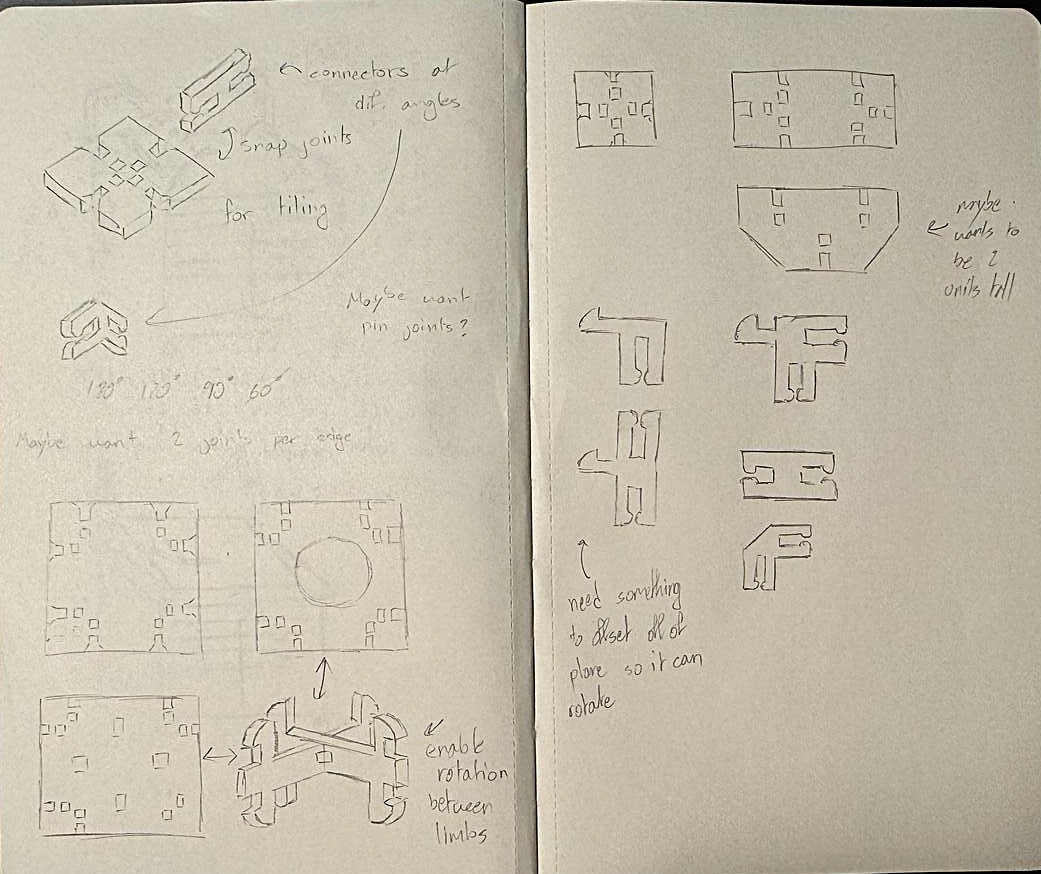 connectors at
dif. angles
snap joints
for tiling
Maybe want
pin joints?
180° 120° 90° 60°
Maybe want 2 joints per edge
enable
rotation
between
limbs
maybe
wants to
be 2
units tall
need something
to offset off of
plane so it can
rotate